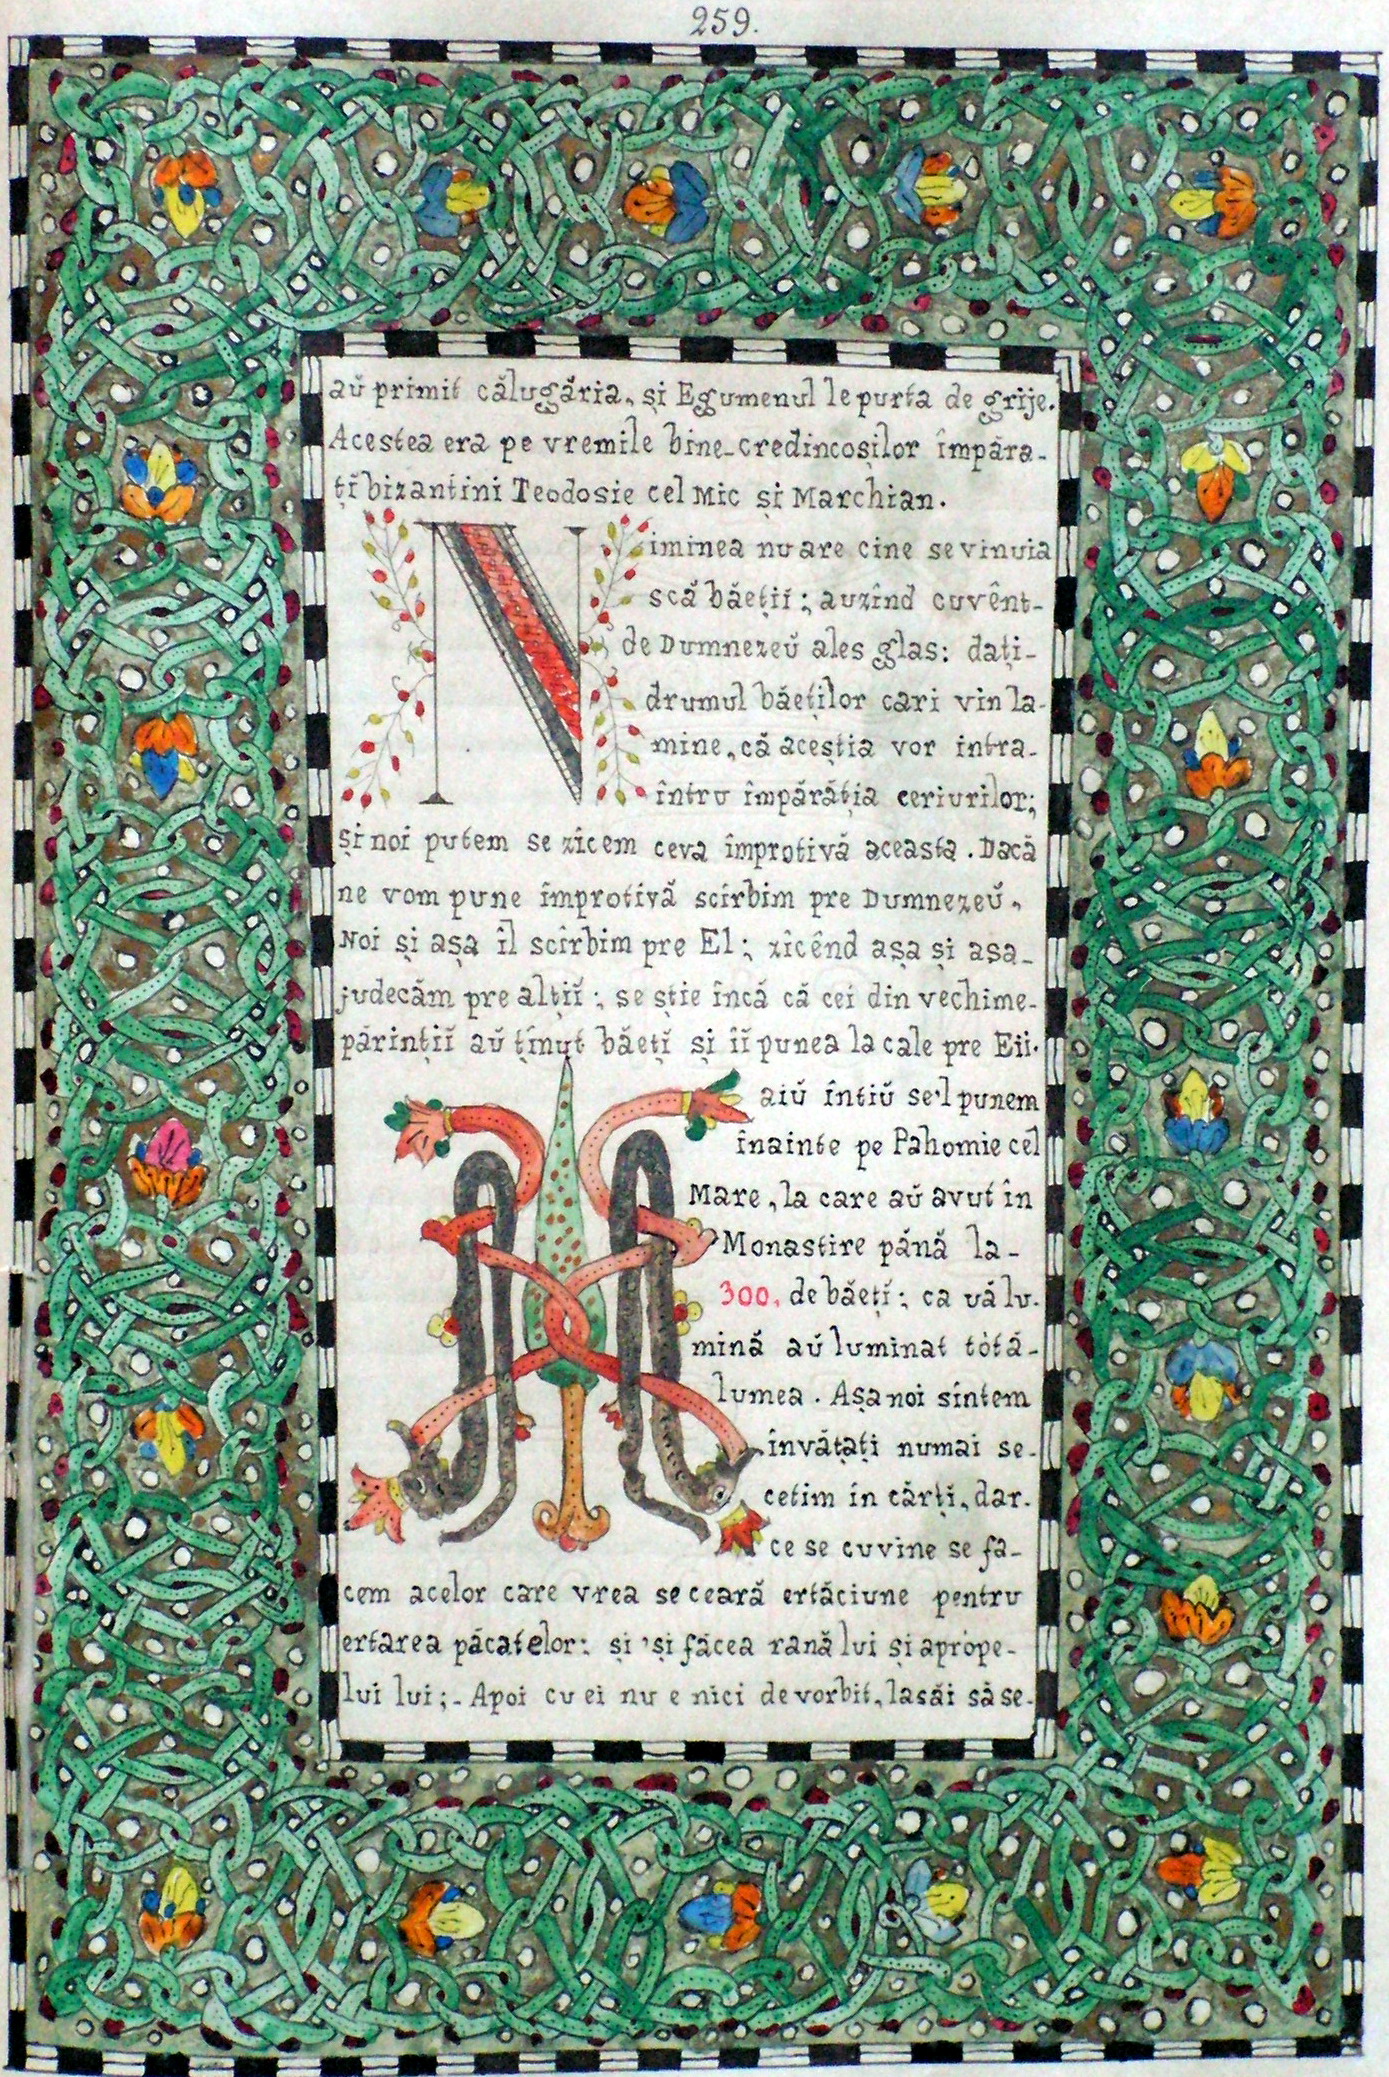 259.
aŭ primit călugăria, și Egumenul le purta de grije.
Acestea era pe vremile bine-credincoșilor împăra-
țĭ bizantini Teodosie cel Mic și Marchian.
Niminea nu are cine se vinuia
scă băețiĭ; auzînd cuvênt-
de Dumnezeŭ ales glas: dați-
drumul băeților cari vin la-
mine, că aceștia vor intra-
întru împărăția ceriurilor;
și noi putem se zicem ceva împrotivă aceasta. Dacă
ne vom pune împrotivă scîrbim pre Dumnezeŭ,
Noi și așa îl scîrbim pre El; zîcênd așa și așa-
judecăm pre alțiĭ; se știe încă că cei din vechime-
părințiĭ aŭ ținut băețĭ și îĭ punea la cale pre Eii.
Maiŭ întiŭ se'l punem
înainte pe Pahomie cel
Mare, la care aŭ avut în
Monastire până la-
300, de băețĭ; ca uă lu-
mină aŭ luminat tòtă-
lumea. Așa noi sîntem
învățați numai se-
cetim în cărțĭ, dar.
ce se cuvine se fa-
cem acelor care vrea se ceară ertăciune pentru
ertarea păcatelor: și 'și făcea rană lui și apròpe-
lui lui;- Apoi cu ei nu e nici de vorbit, lasăi să se-